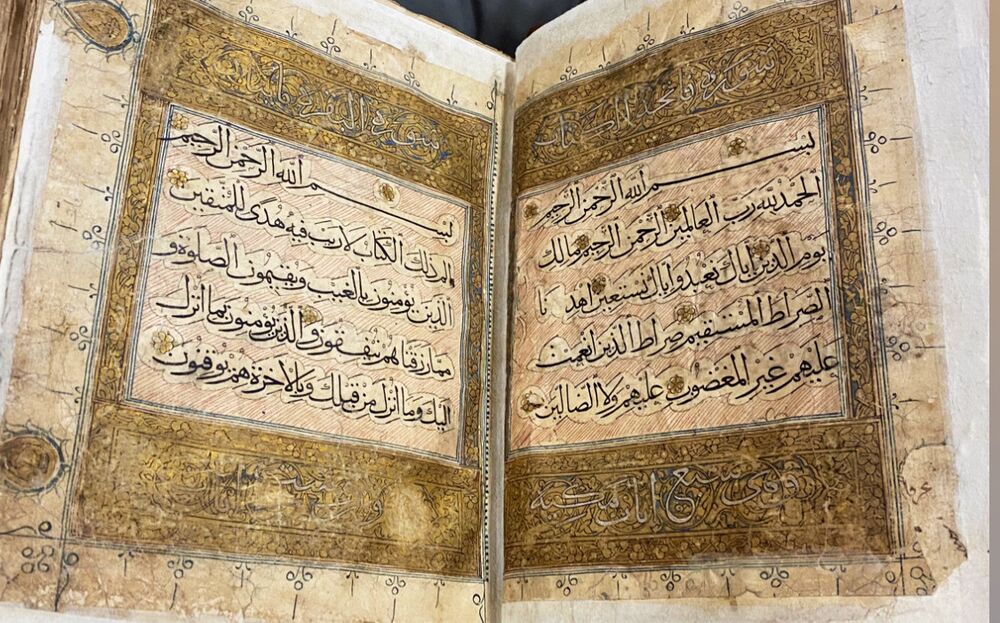 سورة فاتحة الكتاب
بسم الله الرحمن الرحيم
الحمد لله رب العالمين الرحمن الرحيم مالك
يوم الدين اياك نعبد واياك نستعين اهدنا
الصراط المستقيم صراط الذين انعمت
عليهم غير المغضوب عليهم ولا الضالين
وهي سبع ايات مكية
سورة البقرة
بسم الله الرحمن الرحيم
الم ذلك الكتاب لا ريب فيه هدى للمتقين
الذين يؤمنون بالغيب ويقيمون الصلوة و
مما رزقناهم ينفقون والذين يؤمنون بما انزل
اليك وما انزل من قبلك وبالاخرة هم يوقنون